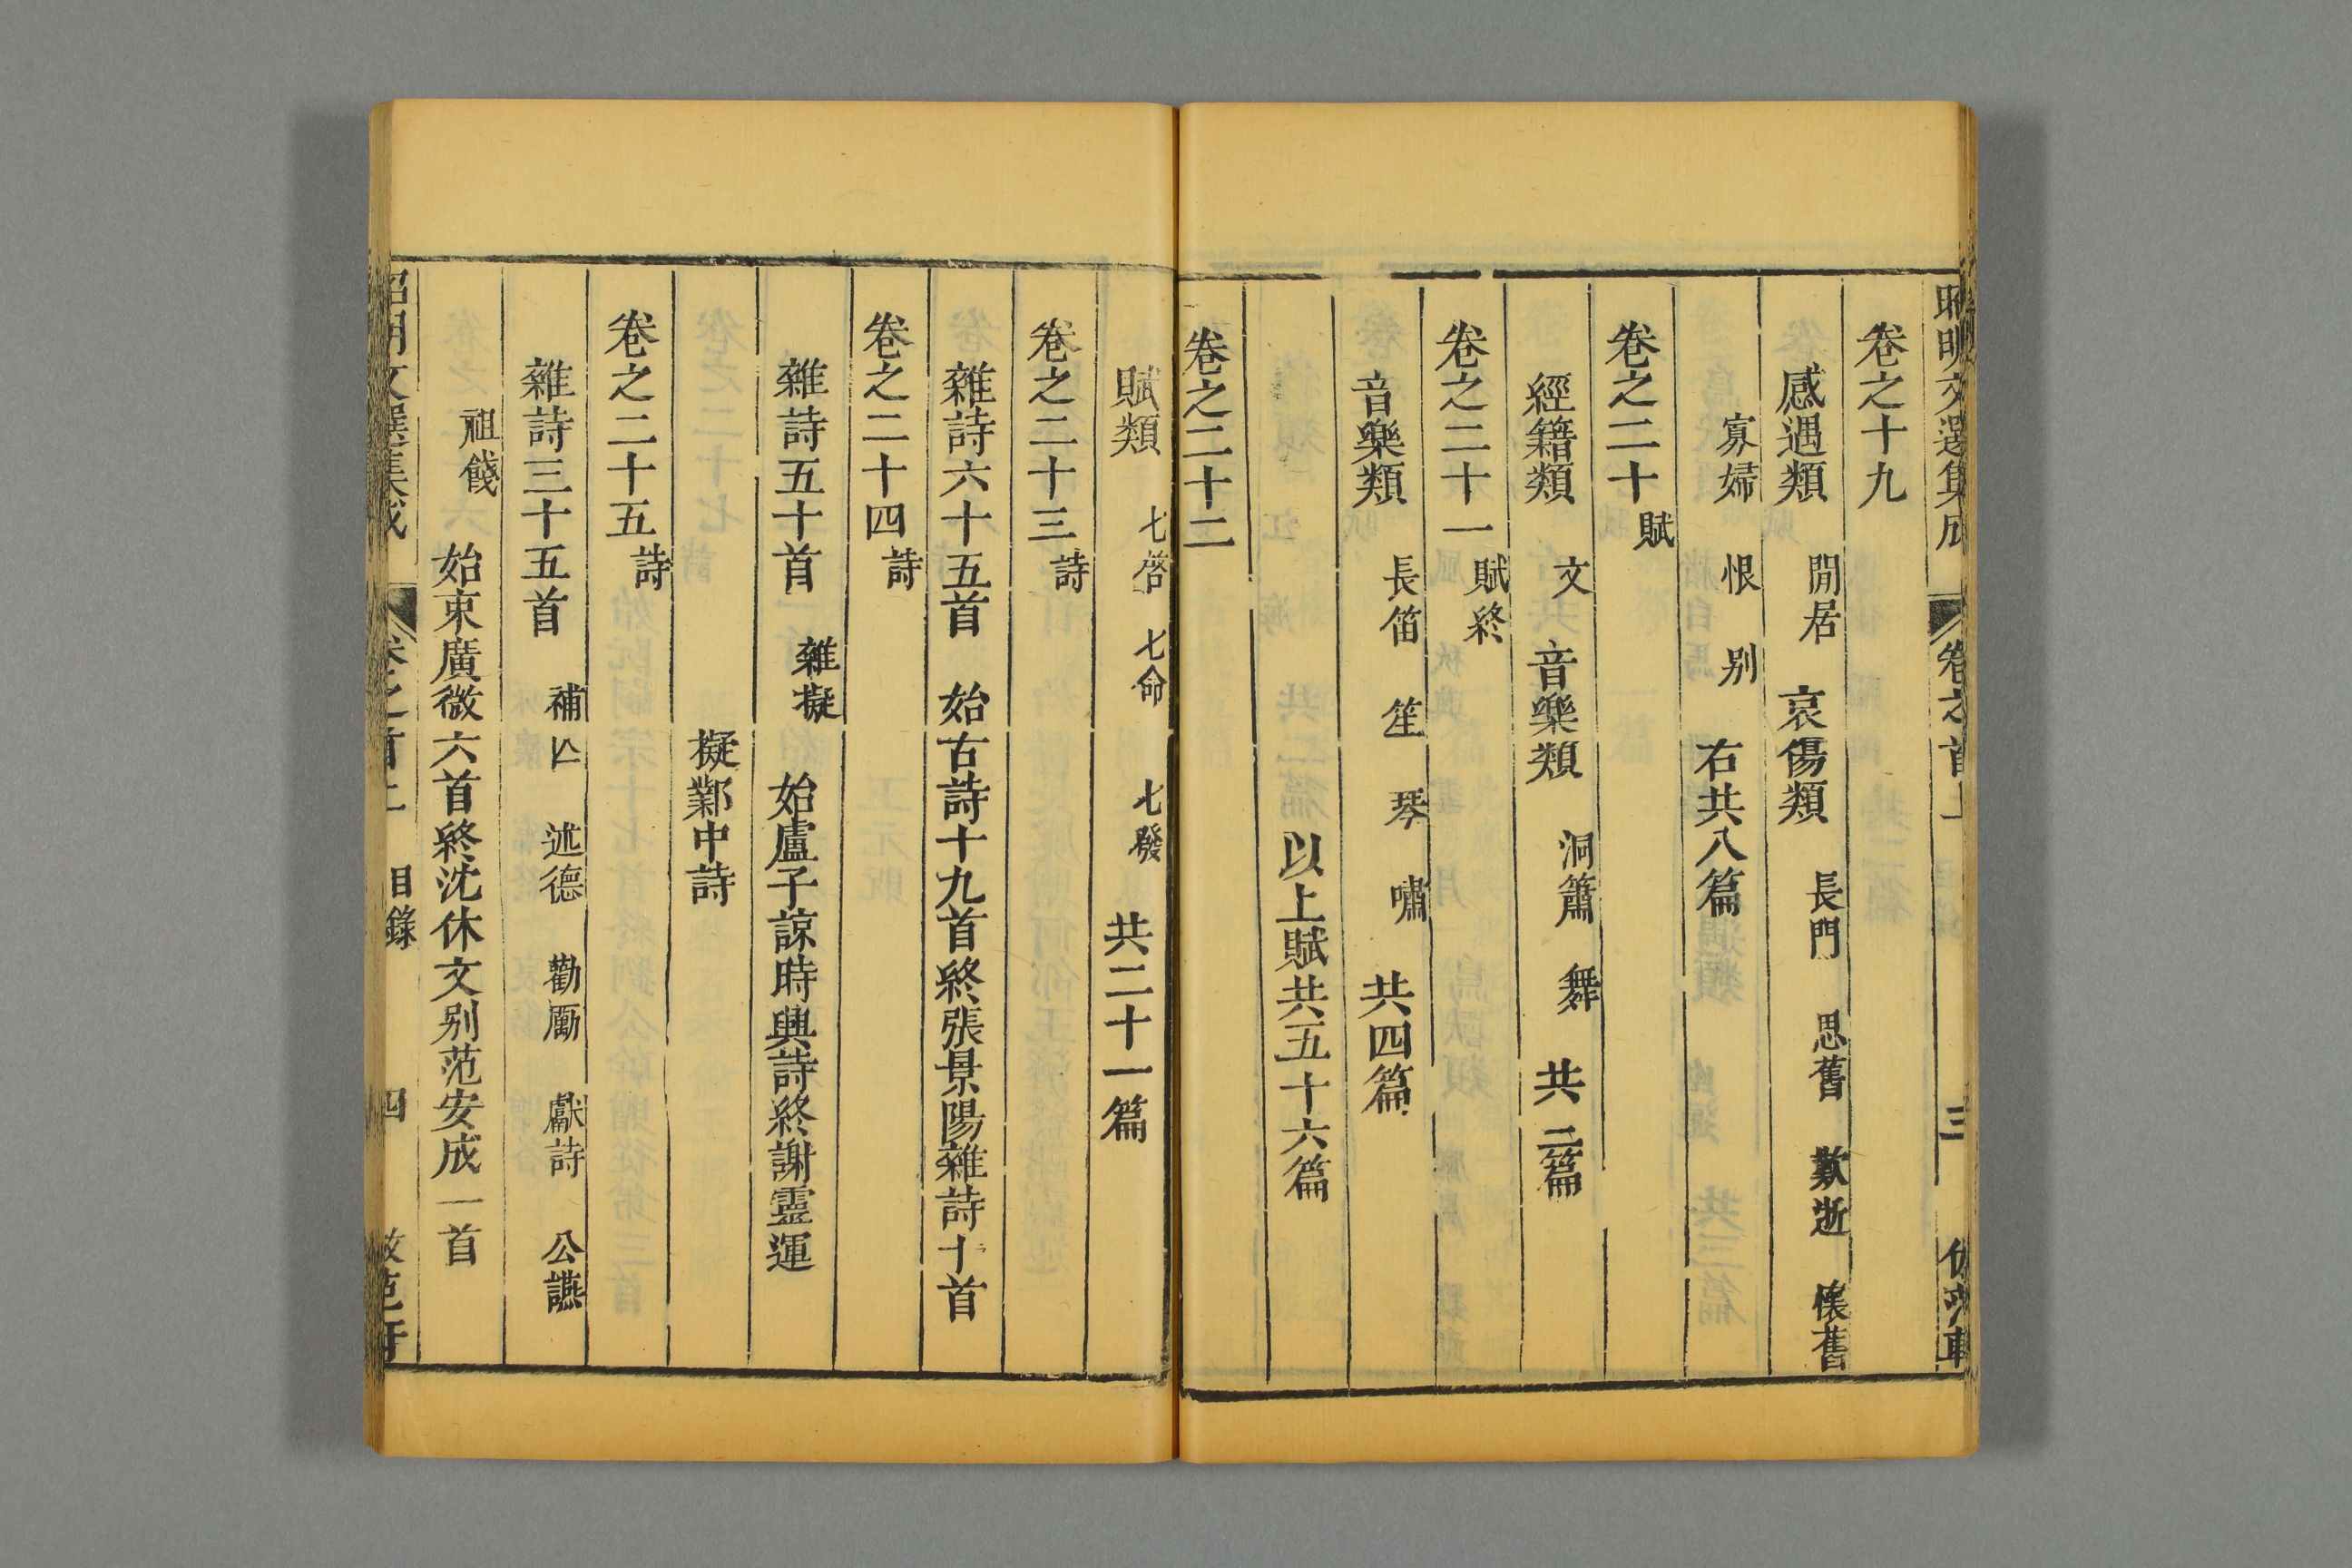 昭明文選集成 卷之首上 三
卷之十九
感遇類 閒居 哀傷類 長門 思舊 歎逝 懷舊
寡婦 恨 別 右共八篇
卷之二十 賦
經籍類 文 音樂類 洞簫 舞 共三篇
卷之二十一 賦終
音樂類 長笛 笙 琴 嘯 共四篇
以上賦共五十六篇
卷之二十二
賦類 七啓 七命 七發 共二十一篇
卷之二十三 詩
雜詩六十五首 始古詩十九首終張景陽雜詩十首
卷之二十四 詩
雜詩五十首 雜擬 始盧子諒時興詩終謝靈運
擬鄴中詩
卷之二十五 詩
雜詩三十五首 補亡 述德 勸勵 獻詩 公讌
祖餞 始束廣微六首終沈休文別范安成一首
昭明文選集成 卷之首上 目錄 四